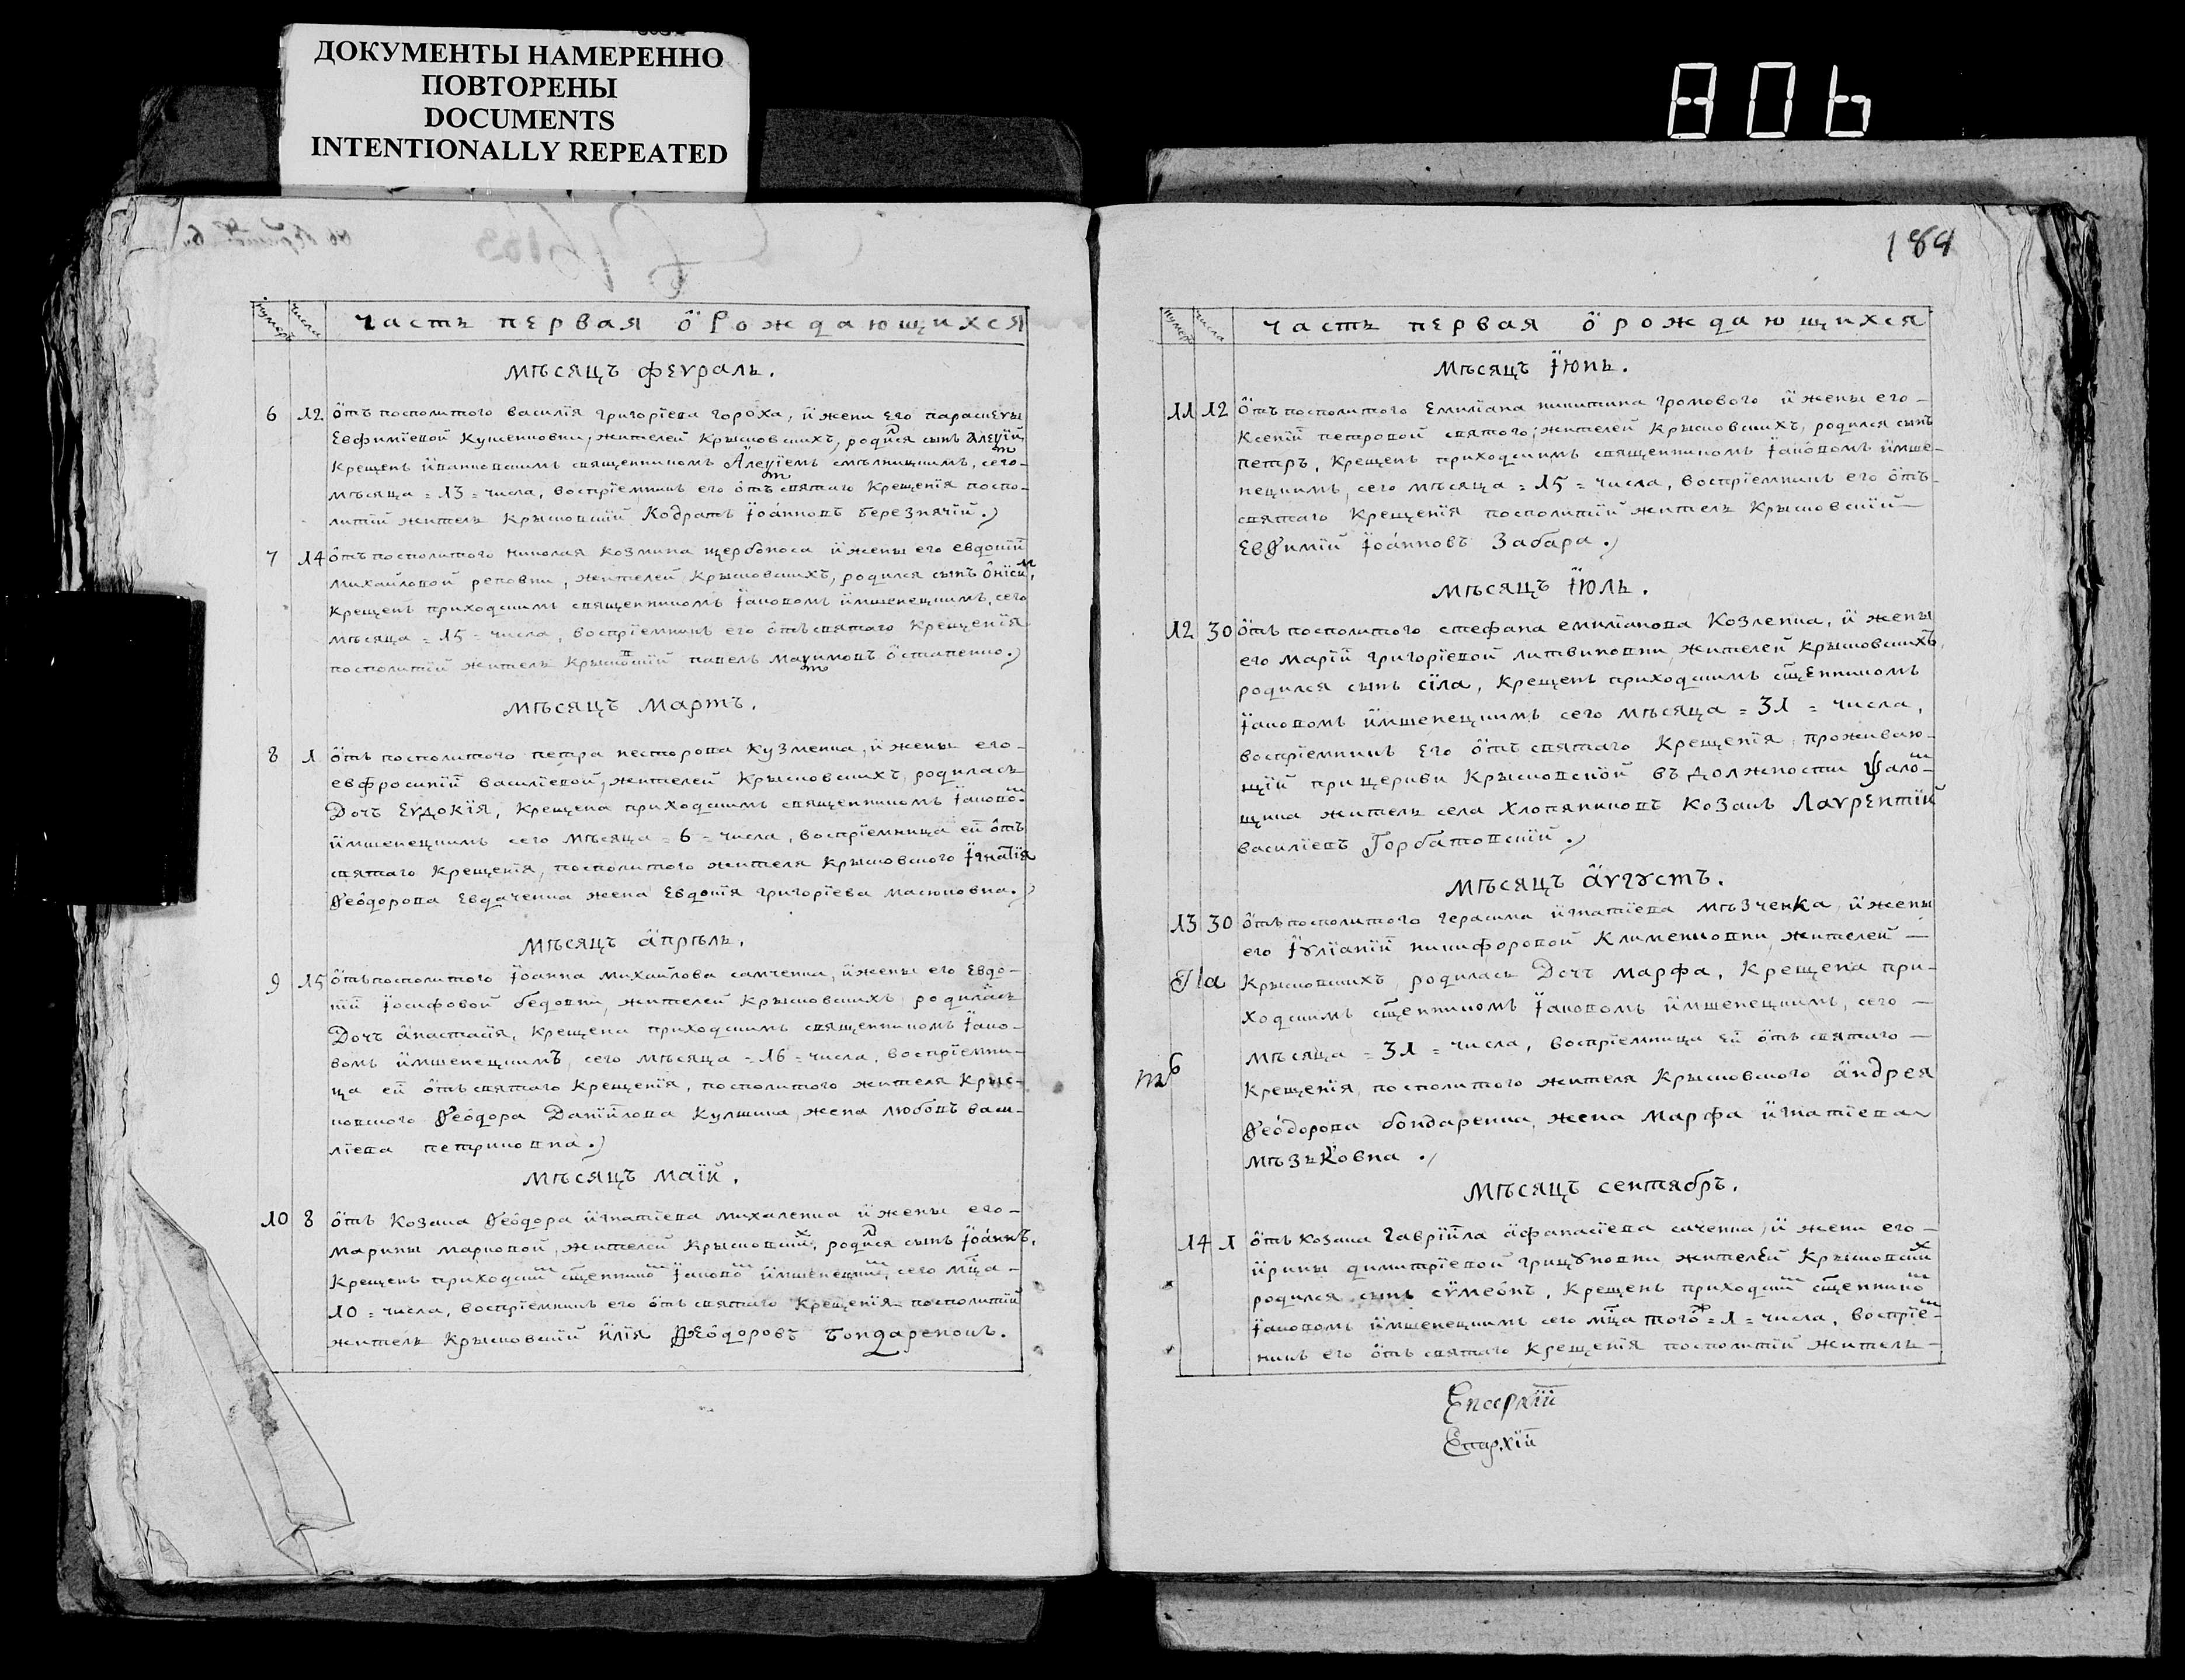 ДОКУМЕНТЫ НАМЕРЕННО
ПОВТОРЕНЫ
DOCUMENTS
INTENTIONALLY REPEATED
806
нумеръ числа часть первая о рождающихся
мѣсяцъ февраль.
6 12 ѿтъ посполитого василїя григорїева гороха, и жени его параскевы
Евфимїевой Кушенковни, жителей Крысковскихъ, родился сынъ Алеѯїй
крещенъ ивановскимъ священникомъ Алеѯїемъ смѣлницкимъ, сего
мѣсяца = 13 = числа, воспрїемникъ его отъ святаго крещенїя поспо-
литїй житель Крысковскїй Кодратъ Іоанновъ березнячїй.
7 14 отъ посполитого николая козмина щербоноса и жены его евдокїи
михайловой реповни, жителей Крысковскихъ, родился сынъ Онїсим,
крещенъ приходскимъ священникомъ Іаковомъ имшенецкимъ, сего
мѣсяца = 15 = числа, воспрїемникъ его отъ святаго крещенїя
посполитїй житель Крысковскїй павелъ Маѯимовъ остапенко.
мѣсяцъ мартъ.
8 1 отъ посполитого петра несторова Кузменка, и жены его-
евфросинїи василїевой, жителей Крысковскихъ, родилась
Дочъ Евдокїя, крещена приходскимъ священникомъ Іаково-м
имшенецкимъ сего мѣсяца = 6 = числа, воспрїемница ей отъ
святаго крещенїя, посполитого жителя Крысковского Ігнатїя
Ѳеодорова Евдаченка жена Евдокїя григорїева масюковна.
мѣсяцъ апрѣль.
9 15 отъ посполитого Іоанна михайлова самченка, и жены его Евдо-
кїи Іосифовой бедовни, жителей Крысковскихъ родилась
Дочъ анастасїя, крещена приходскимъ священникомъ Іако-
вомъ имшенецкимъ, сего мѣсяца = 16 = числа, воспрїемни-
ца ей отъ святаго крещенїя, посполитого жителя Крыс-
ковского Ѳеодора Данїилова Кулшика жена любовъ васи-
лїева петриковна.
мѣсяцъ маїй.
10 8 отъ Козака Ѳеодора игнатїева михаленка и жены его-
марины марковой, жителей Крысковскихъ, родился сынъ Іоаннъ,
крещенъ приходскимъ сщенникомъ Іаковомъ имшенецкимъ, сего мца-
10 = числа, воспрїемникъ его отъ святаго крещенїя посполитїй
житель Крысковскїй илїя Ѳеодоровъ бондаренокъ.
184
нумеръ числа часть первая о рождающихся
мѣсяцъ Іюнь.
11 12 отъ посполитого Емилїана никитина громового и жены его-
Ксенїи петровой святого, жителей Крысковскихъ, родился сынъ
петръ, крещенъ приходскимъ священникомъ Іаковомъ имше-
нецкимъ, сего мѣсяца = 15 = числа, воспрїемникъ его отъ-
святаго крещенїя посполитїй житель Крысковскїй-
Евѳимїй Іоанновъ Забара.
мѣсяцъ Іюль.
12 30 отъ посполитого стефана емилїанова Козленка, и жены
его марїи григорїевой литвиновни, жителей Крысковскихъ,
родился сынъ сїла, крещенъ приходскимъ сщенникомъ
Іаковомъ имшенецкимъ сего мѣсяца = 31 = числа,
воспрїемникъ его отъ святаго крещенїя, проживаю-
щїй прицеркви Крысковской въ должности ѱалом-
щика житель села Хлопяниковъ Козакъ Лаврентїй
василїевъ Горбатовскїй.
мѣсяцъ августъ.
13 30 отъ посполитого герасима игнатїева мѣзченка, и жены
его Іулїанїи никифоровой Клименковни, жителей-
Крысковскихъ, родилась Дочъ марфа, крещена при-
ходскимъ сщенникомъ Іаковомъ имшенецкимъ, сего-
мѣсяца = 31 = числа, воспрїемница ей отъ святаго-
крещенїя, посполитого жителя Крысковского андрея
Ѳеодорова бондаренка, жена марфа игнатїева
мѣзьковна.
мѣсяцъ сентябръ.
14 1 отъ козака Гаврїила афанасїева саченка, и жени его-
ирины димитрїевой грицуковни жителей Крысковскихъ
родился сынъ сѵмеонъ, крещенъ приходским сщенником
Іаковомъ имшенецкимъ сего мца того = 1 = числа, воспрїем-
никъ его отъ святаго крещенїя посполитїй житель-
Епархїи
Епархїи